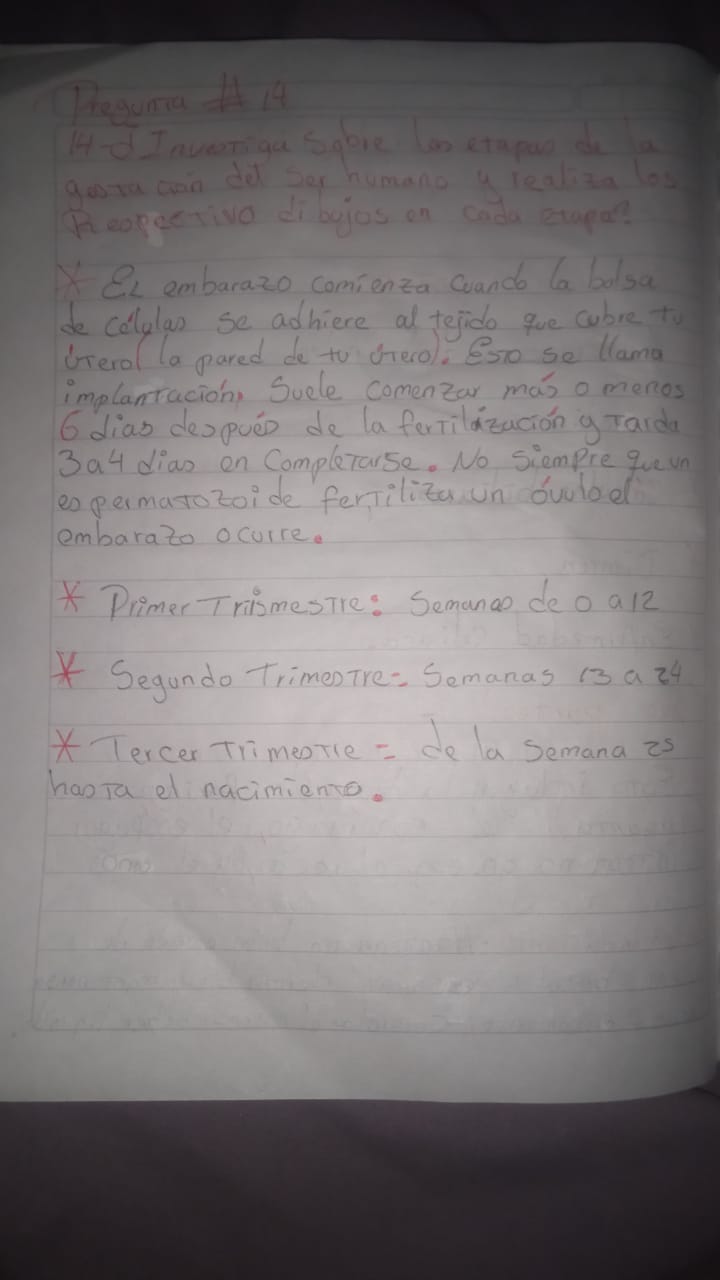 Pregunta # 14
14-d Investiga sobre las etapas de la
gestación del ser humano y realiza los
Respectivo dibujos en cada etapa?
* EL embarazo comienza cuando la bolsa
de células se adhiere al tejido que cubre tu
útero( la pared de tu útero). Esto se llama
implantación, Suele comenzar más o menos
6 dias después de la fertilización y tarda
3 a 4 dias en completarse. No siempre que un
espermatozoide fertiliza un óvulo el
embarazo ocurre.
* Primer Trismestre: Semanas de 0 a 12
* Segundo Trimestre= Semanas 13 a 24
* Tercer trimestre = de la semana 25
hasta el nacimiento.